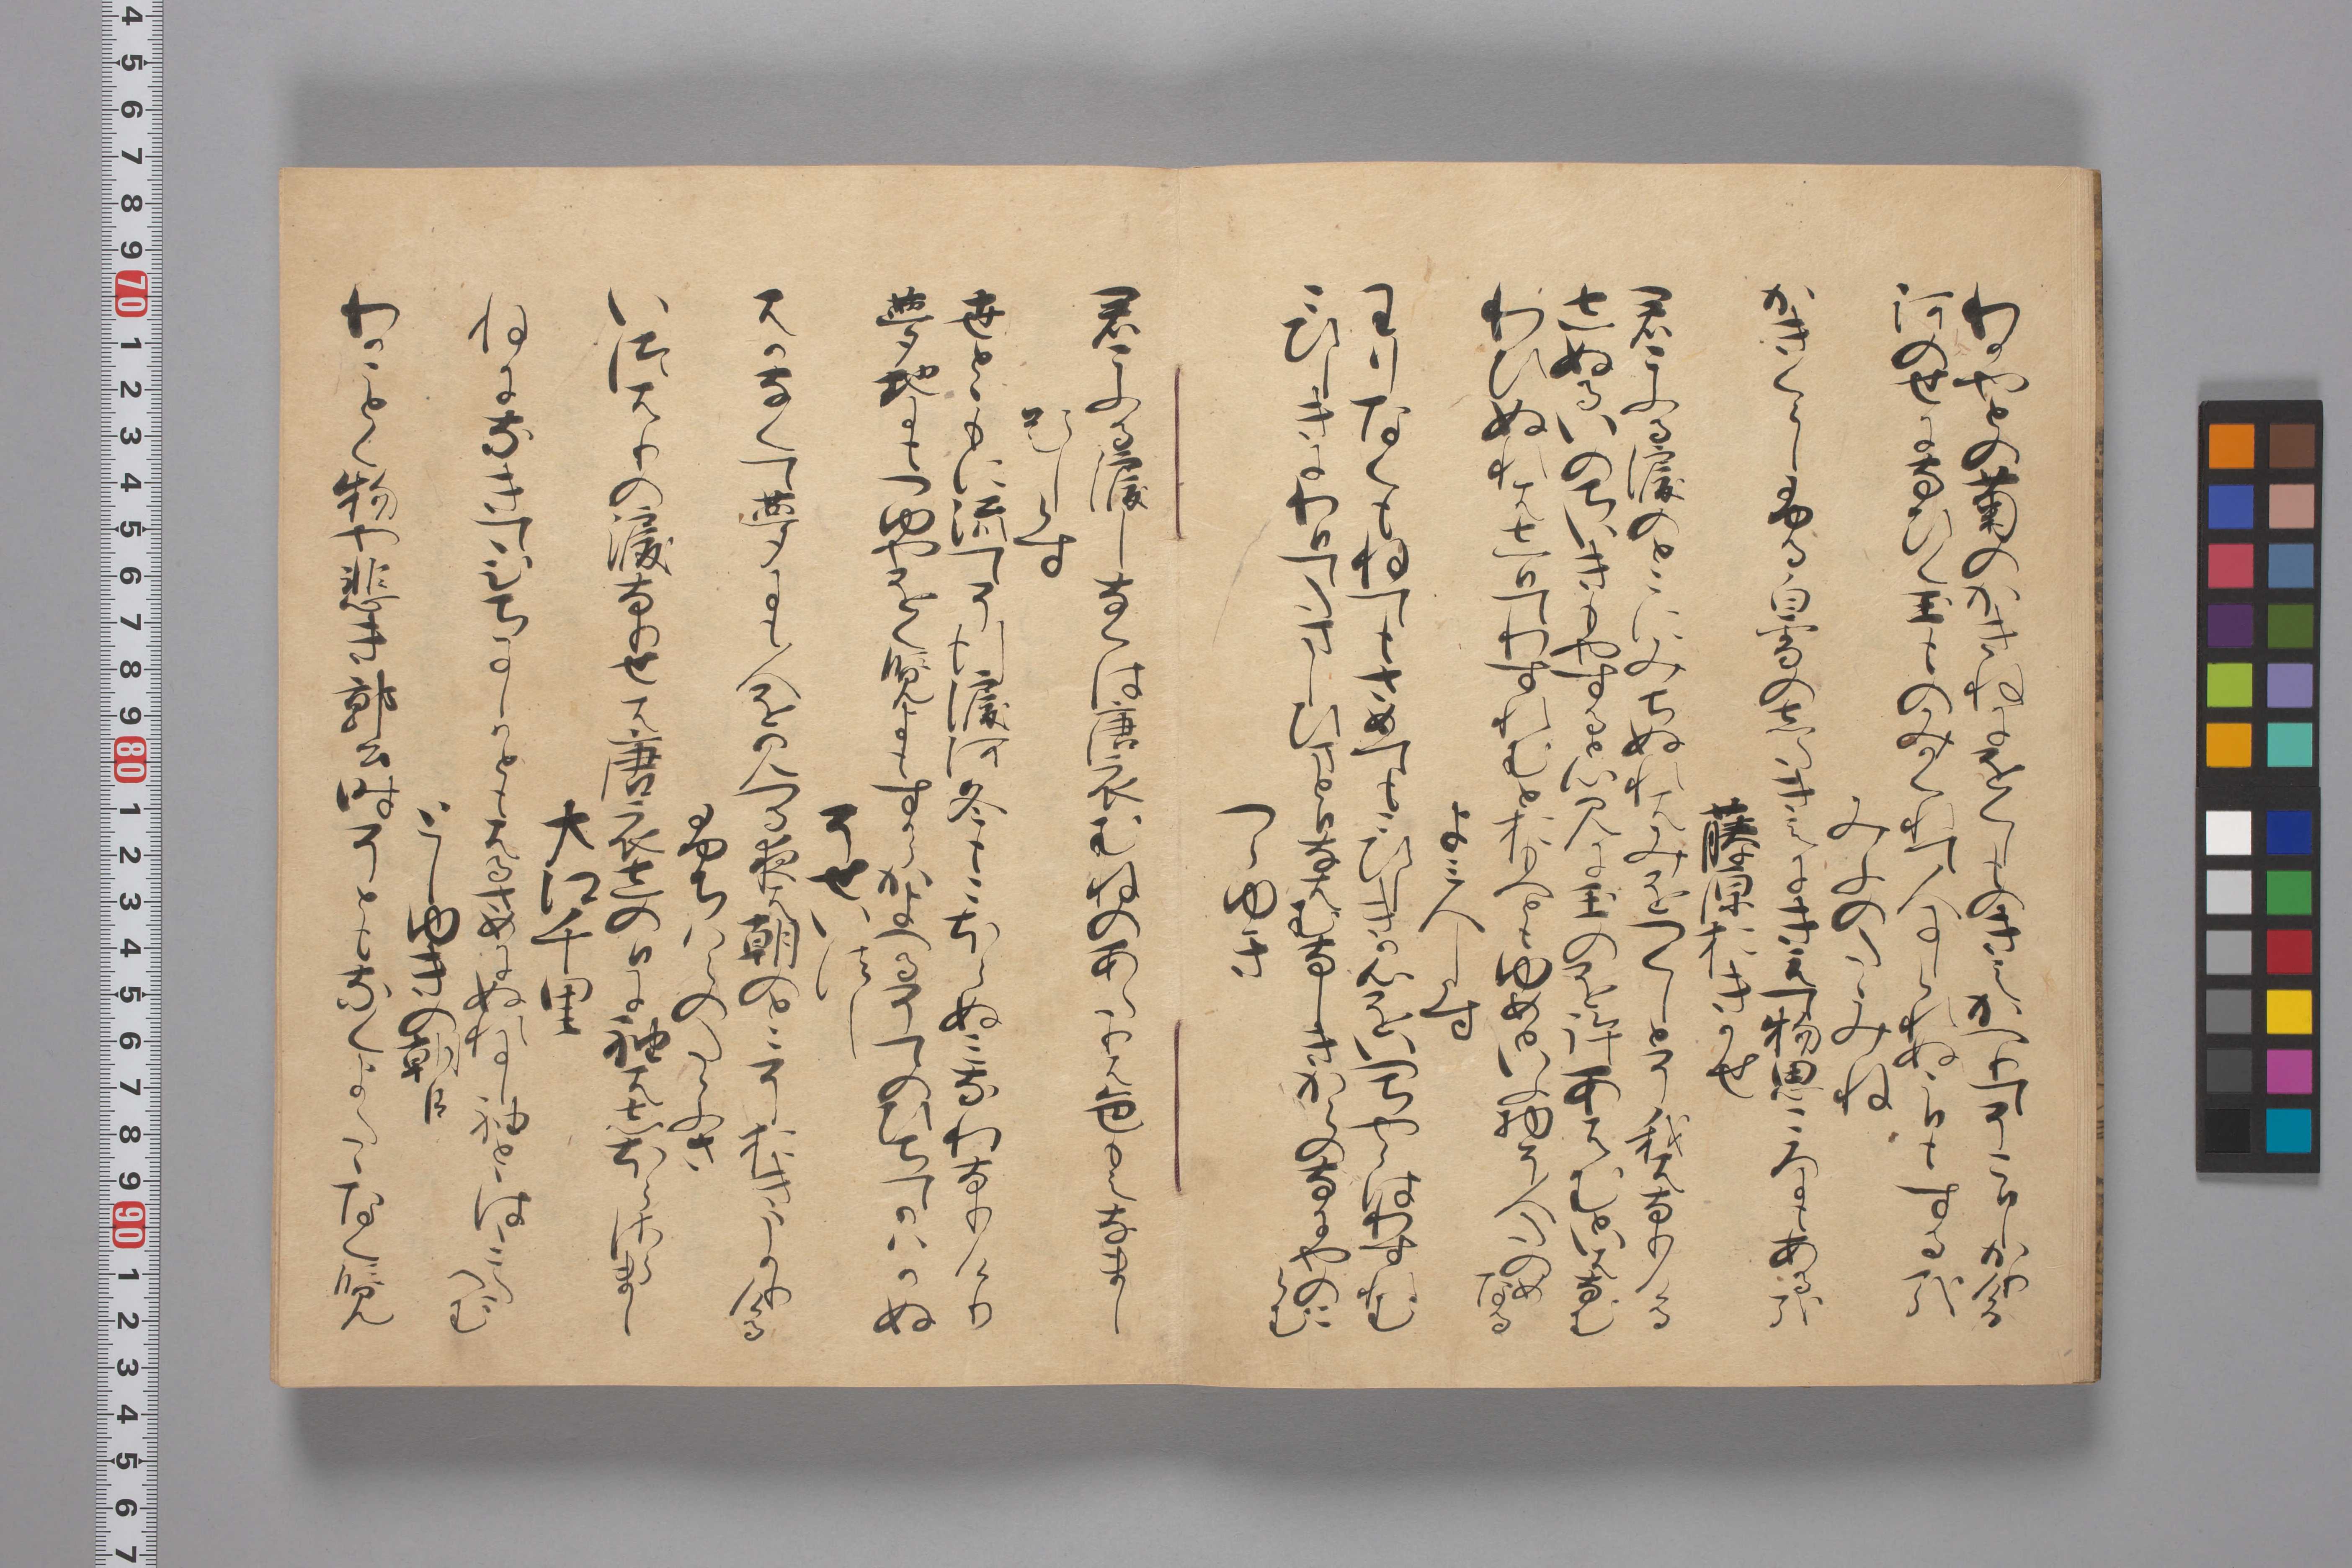 わかやとの菊のかきねにをくしものきえかへりてそこひしかりける
河のせになひく玉ものみかくれて人にしられぬこひもするかな
みふのたゝみね
かきくらしふる白雪のしたきえにきえて物思ころにもあるかな
藤原おきかせ
君こふる涙のとこにみちぬれはみをつくしとそ我はなりける
しぬるいのちいきもやすると心みに玉のを許あはむといはなむ
わひぬれはしひてわすれむとおもへともゆめといふ物そ人たのめなる
よみ人しらす
わりなくもねてもさめてもこひしきか心をいつちやらはわすれむ
こひしきにわひてたましひまとひなはむなしきからのなにやのこらむ
つらゆき
君こふる涙しなくは唐衣むねのあたりは色もえなまし
題しらす
世とゝもに流てそ行涙河冬もこほらぬみなわなりけり
夢地にもつゆやをくらむ
そせいほうし
はかなくて夢にも人をみつる夜は朝のとこそおきうかりける
ふちはらのたゝふさ
いつはりの涙なりせは唐衣しのひに袖はしほらさらまし
大江千里
ねになきてひちにしかとも春さめにぬれにし袖ととはゝこたへむ
としゆきの朝臣
わかことく物や悲き郭公時そともなくよたゝなく覧